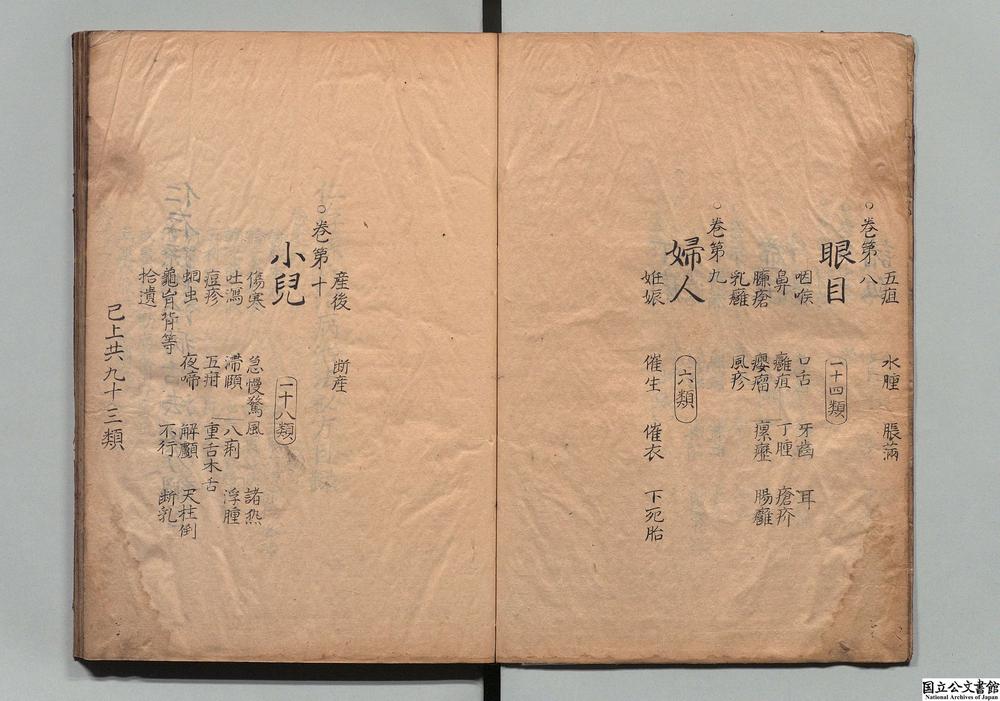 五疸 水腫 脹滿
○卷第八
眼目 一十四類
咽喉 口舌 牙齒 耳
鼻 癰疽 丁腫 瘡疥
臁瘡 癭瘤 瘰癧 腸癰
乳癰 風疹
○卷第九
婦人 六類
妊娠 催生 催衣 下死胎
産後 断産
○卷第十
小兒 一十八類
傷寒 急慢驚風 諸热
吐瀉 滞頥 八痢 浮腫
痘疹 五疳 重舌木舌
蛔虫 夜啼 解顱 天柱倒
龜胷背等 不行 断乳
拾遺
己上共九十三類
国立公文書館
National Archives of Japan